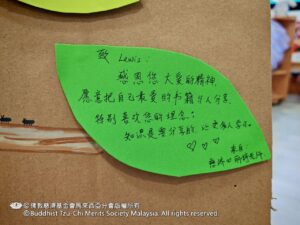 致 Lewis:
感恩您大爱的精神,
愿意把自己最爱的书籍与人分享,
特别喜欢您的理念:
知识是要分享的, 让更多人
♡ ♡ ♡
来自
老师
©佛教慈濟基金會馬來西亞分會版權所有
©Buddhist Tzu-Chi Merits Society Malaysia. All rights reserved.